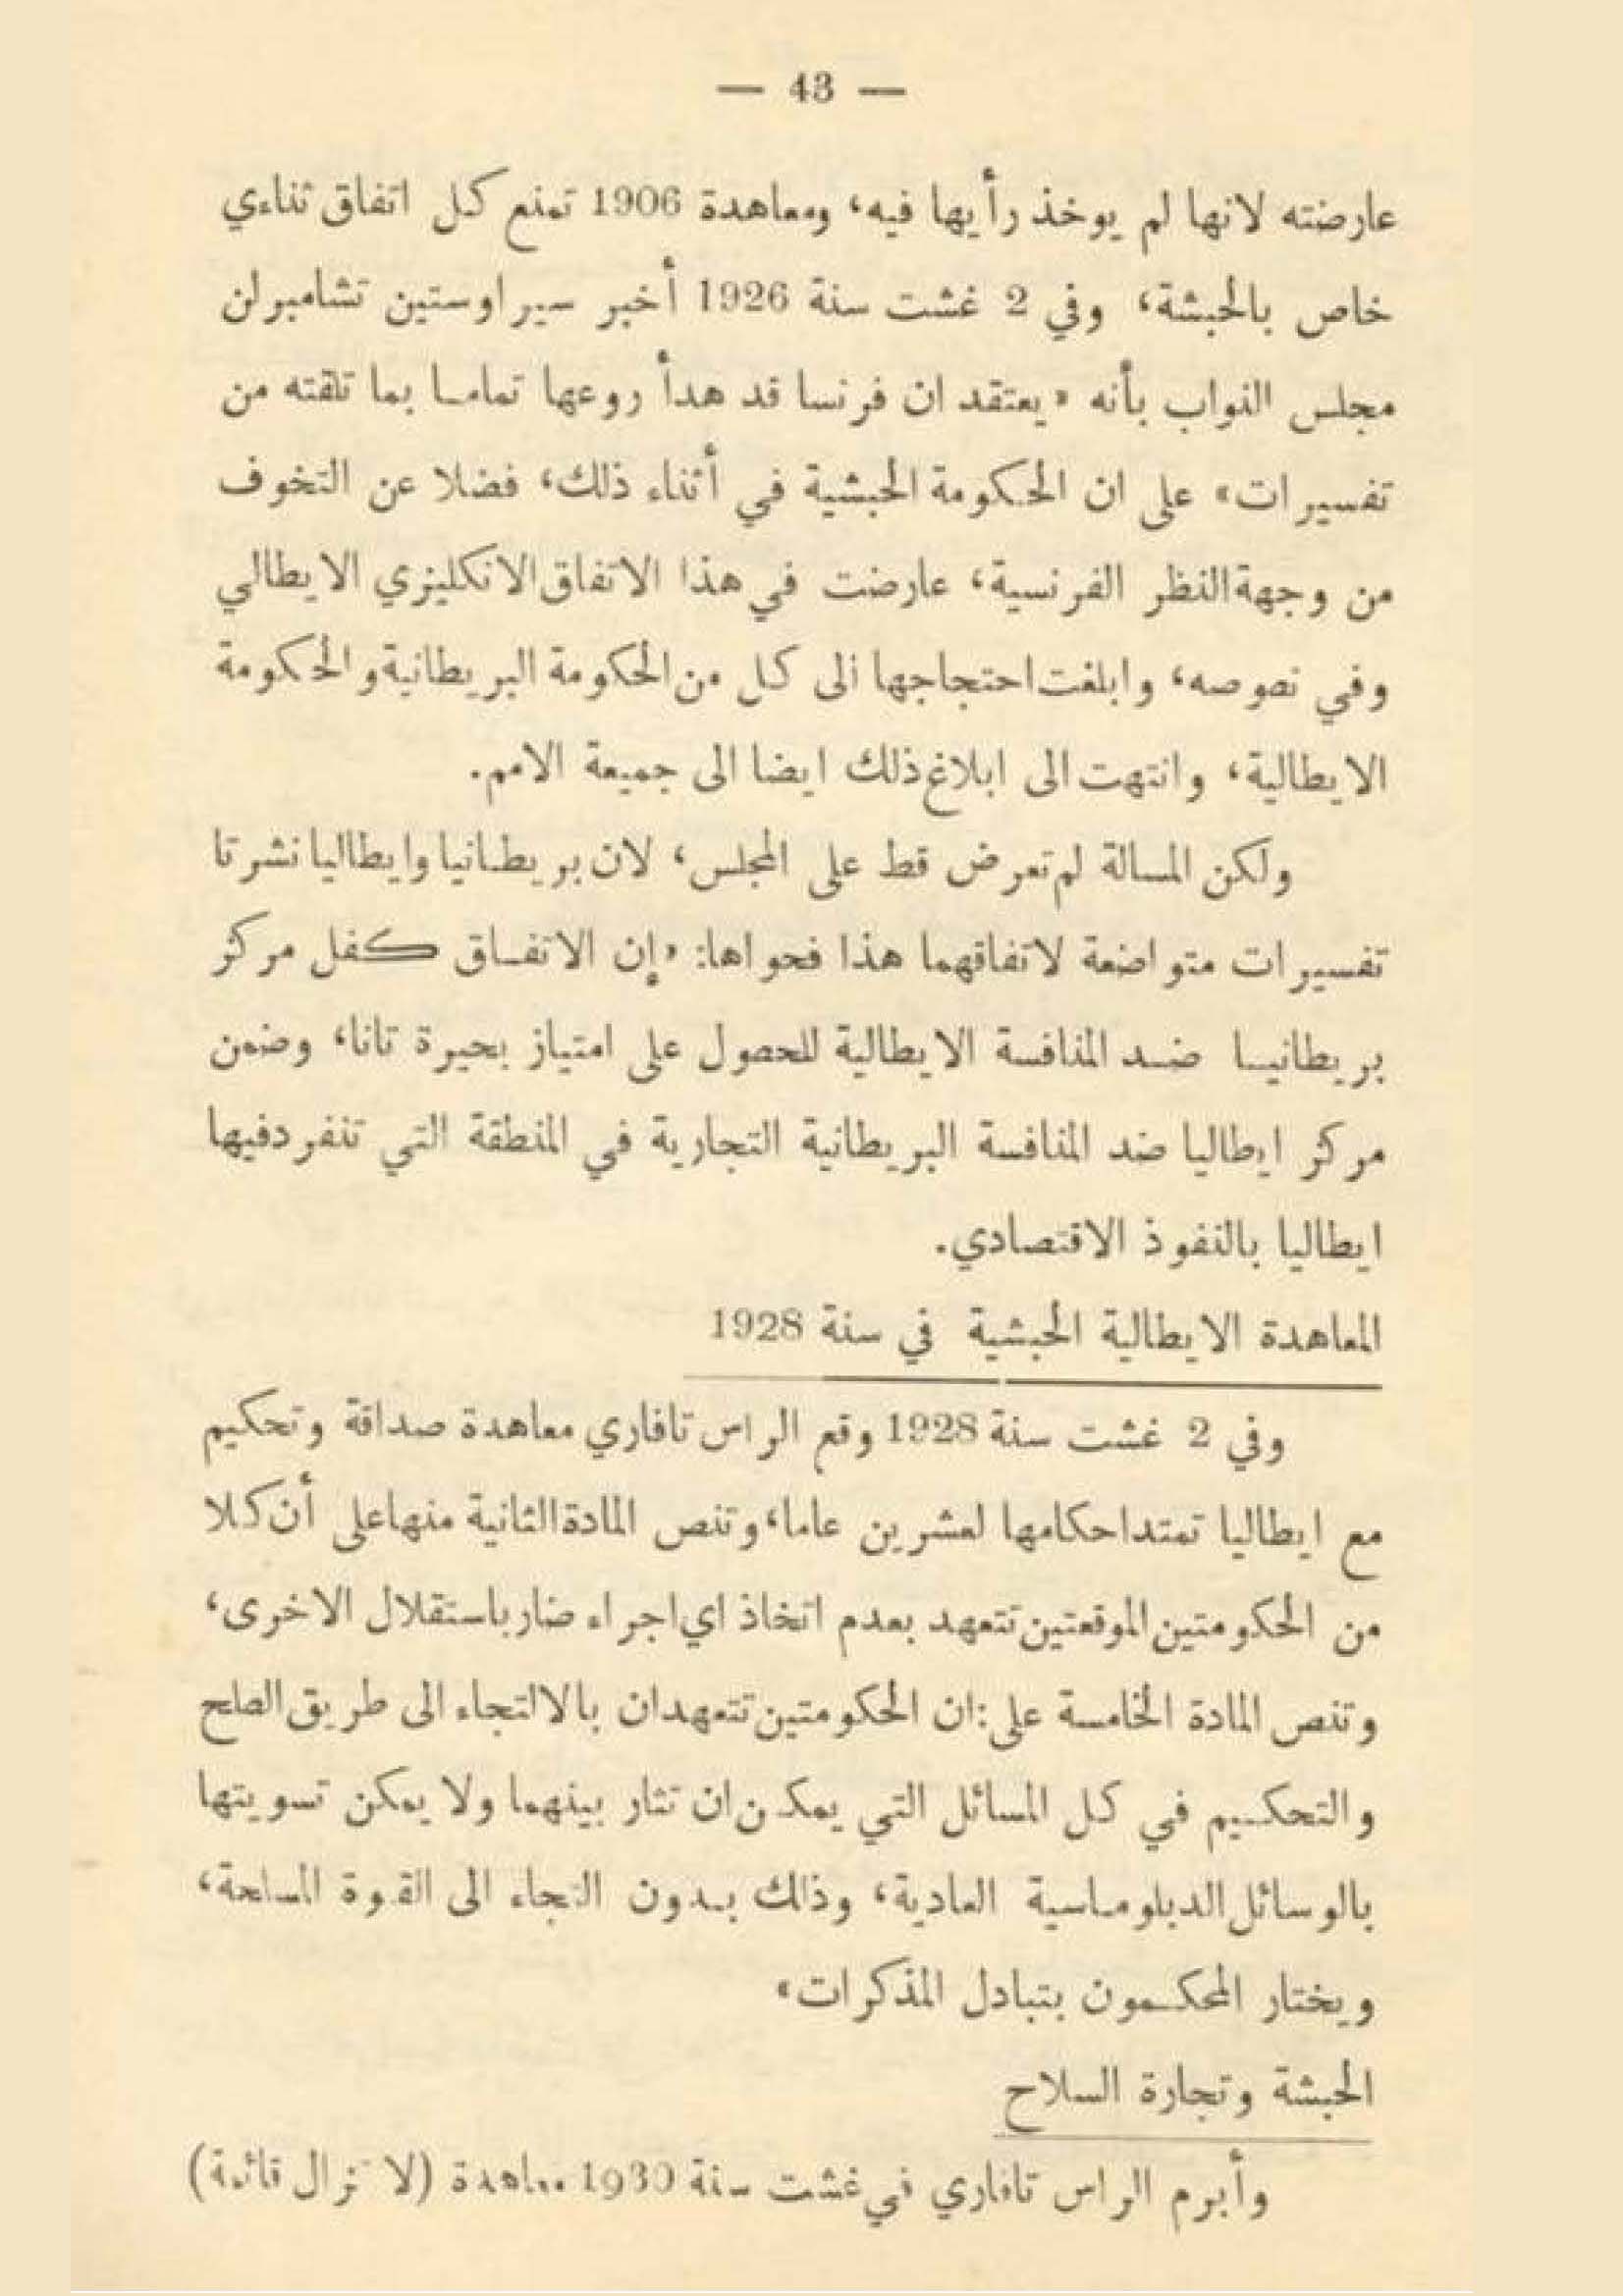 — 43 —
عارضته لانها لم يوخذ رأيها فيه، ومعاهدة 1906 تمنع كل اتفاق ثناءي
خاص بالحبشة، وفي 2 غشت سنة 1926 أخبر سير اوستين تشامبرلن
مجلس النواب بأنه «يعتقد ان فرنسا قد هدأ روعها تماما بما تلقته من
تفسيرات» على ان الحكومة الحبشية في أثناء ذلك، فضلا عن التخوف
من وجهة النظر الفرنسية، عارضت في هذا الاتفاق الانكليزي الايطالي
وفي نصوصه، وابلغت احتجاجها الى كل من الحكومة البريطانية والحكومة
الايطالية، وانتهت الى ابلاغ ذلك ايضا الى جميعة الامم.
ولكن المسالة لم تعرض قط على المجلس، لان بريطانيا وايطاليا نشرتا
تفسيرات متواضعة لاتفاقهما هذا فحواها: «إن الاتفاق كفل مركز
بريطانيا ضد المنافسة الايطالية للحصول على امتياز بحيرة تانا، وضمن
مركز ايطاليا ضد المنافسة البريطانية التجارية في المنطقة التي تنفرد فيها
ايطاليا بالنفوذ الاقتصادي.
المعاهدة الايطالية الحبشية في سنة 1928
وفي 2 غشت سنة 1928 وقع الراس تافاري معاهدة صداقة وتحكيم
مع ايطاليا تمتد احكامها لعشرين عاما، وتنص المادة الثانية منها على أن كلا
من الحكومتين الموقعتين تتعهد بعدم اتخاذ اي اجراء ضار باستقلال الاخرى،
وتنص المادة الخامسة على: ان الحكومتين تتعهدان بالالتجاء الى طريق الصلح
والتحكيم في كل المسائل التي يمكن ان تثار بينهما ولا يمكن تسويتها
بالوسائل الدبلوماسية العادية، وذالك بدون التجاء الى القوة المسلحة،
ويختار المحكمون بتبادل المذكرات»
الحبشة وتجارة السلاح
وأبرم الراس تافاري في غشت سنة 1930 معاهدة (لا تزال قائمة)